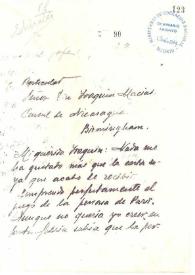 123
90
Particular
Señor Don Joaquín Macías
Consul de Nicaragua
Birmingham.
Mi querido Joaquín: Nada me
ha gustado más que la carta su-
ya que acabo de recibir.
Comprendo perfectamente el
juego de la persona de París.
Aunque no quería yo creer, en
sabía que la per-